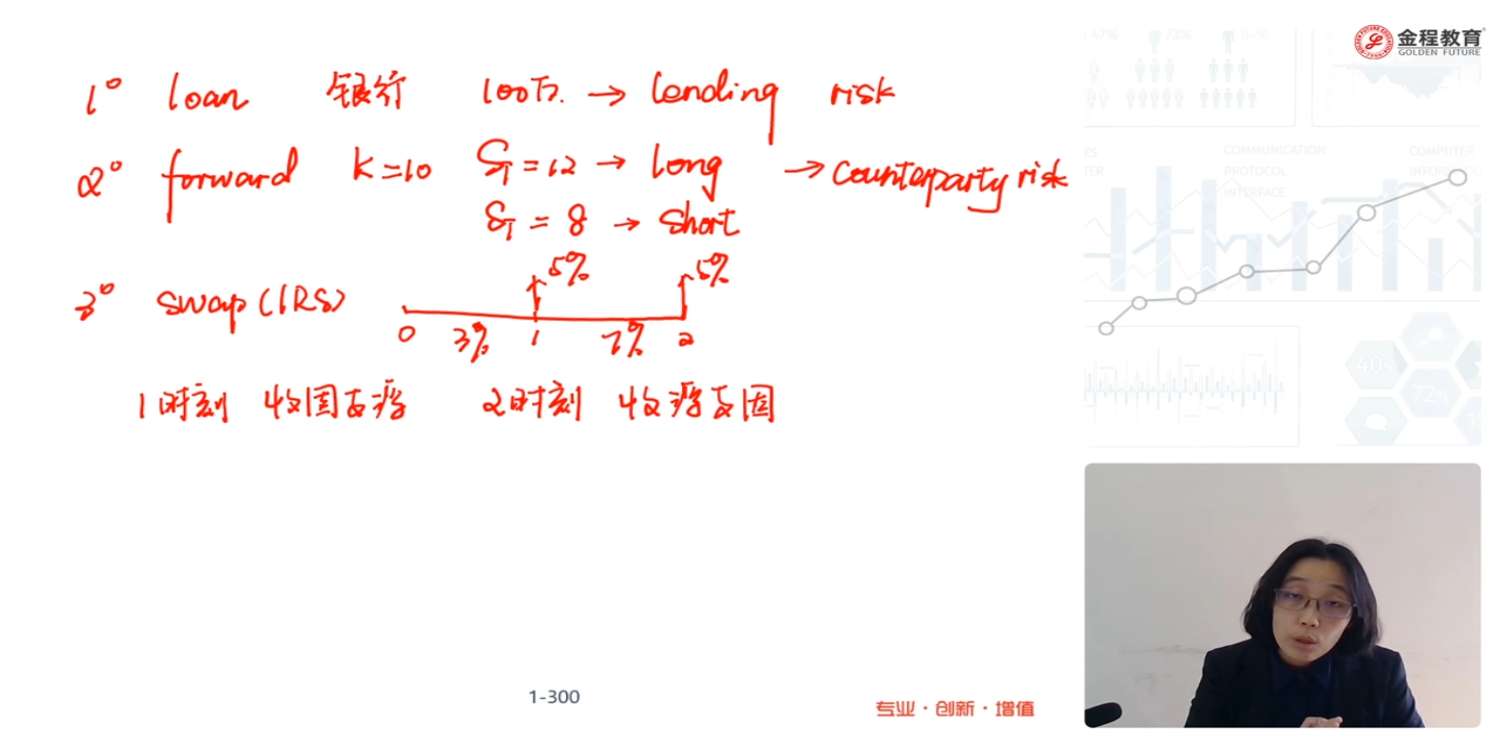 金程教育
GOLDEN FUTURE
1° loan 银行 100万. → lending risk
2° forward K=10 S_T = 12 → long → counterparty risk
S_T = 8 → short
3° swap (IRS) 5% 5%
0 3% 1 7% 2
1时刻 收固支浮 2时刻 收浮支固
COMMUNICATION
PROTOCOL
INTERFACE
COMPUTER
40%
72%
1-300
专业·创新·增值